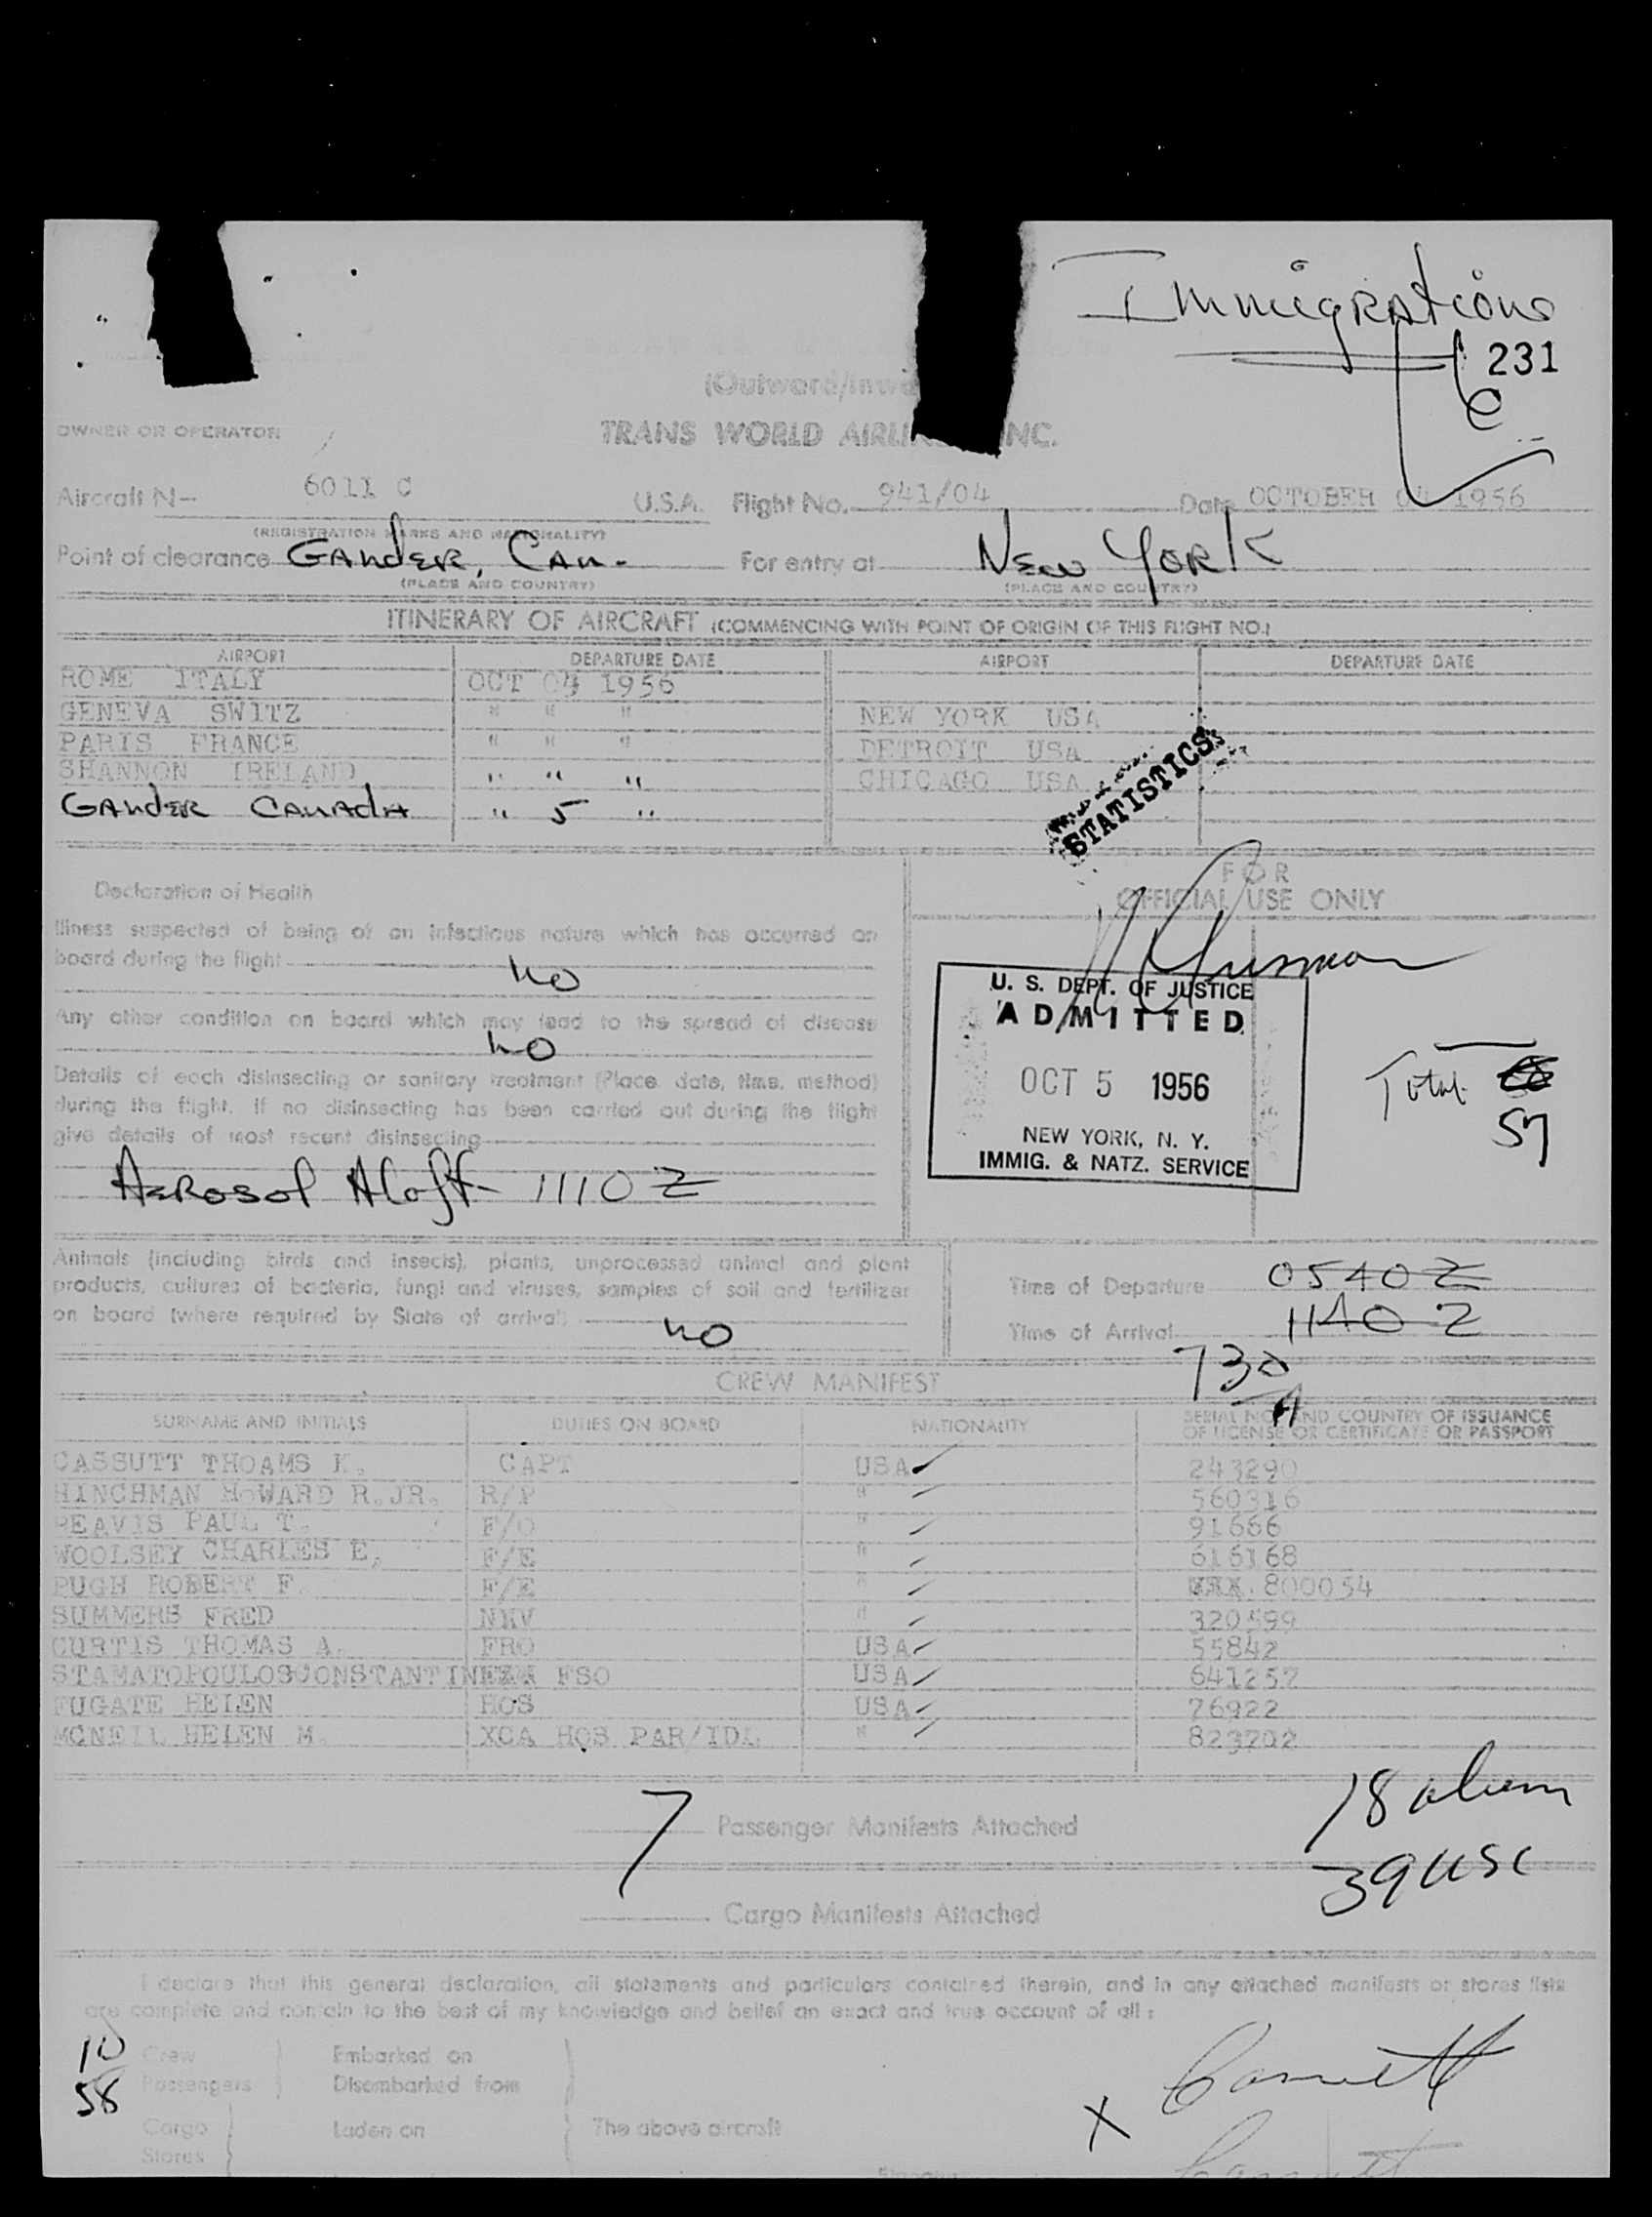 Immigrations
231
(Outward/Inwa
OWNER OR OPERATOR
TRANS WORLD AIRLI NC.
Aircraft N— 6011 C U.S.A. Flight No. 941/04 Date OCTOBER 04 1956
(REGISTRATION MARKS AND NATIONALITY)
Point of clearance GANDER, CAN. For entry at NEW YORK
(PLACE AND COUNTRY) (PLACE AND COUNTRY)
ITINERARY OF AIRCRAFT (COMMENCING WITH POINT OF ORIGIN OF THIS FLIGHT NO.)
AIRPORT DEPARTURE DATE AIRPORT DEPARTURE DATE
ROME ITALY OCT 04 1956
GENEVA SWITZ " " " NEW YORK USA
PARIS FRANCE " " " DETROIT USA
SHANNON IRELAND " " " CHICAGO USA
GANDER CANADA " 5 "
STATISTICS
FOR
OFFICIAL USE ONLY
Declaration of Health
Illness suspected of being of an infectious nature which has occurred on
board during the flight
no
Any other condition on board which may lead to the spread of disease
no
Details of each disinsecting or sanitary treatment (Place, date, time, method)
during the flight. If no disinsecting has been carried out during the flight
give details of most recent disinsecting
Aerosol Aloft- 1110 Z
U. S. DEPT. OF JUSTICE
ADMITTED
OCT 5 1956
NEW YORK, N. Y.
IMMIG. & NATZ. SERVICE
Total
57
Animals (including birds and insects), plants, unprocessed animal and plant
products, cultures of bacteria, fungi and viruses, samples of soil and fertilizer
on board (where required by State of arrival)
no
Time of Departure 0540 Z
Time of Arrival 1140 Z
730
A
CREW MANIFEST
SURNAME AND INITIALS DUTIES ON BOARD NATIONALITY SERIAL NO. AND COUNTRY OF ISSUANCE
OF LICENSE OR CERTIFICATE OR PASSPORT
CASSUTT THOAMS K. CAPT USA 243290
HINCHMAN HOWARD R.JR. R/P " 560316
PEAVIS PAUL T. F/O " 91666
WOOLSEY CHARLES E, F/E " 616168
PUGH ROBERT F. F/E " 800054
SUMMERS FRED NAV " 320599
CURTIS THOMAS A. FRO USA 55842
STAMATOPOULOSCONSTANTINE FSO USA 641257
FUGATE HELEN HOS USA 76922
MCNEIL HELEN M. XCA HOS PAR/IDL " 823702
7 Passenger Manifests Attached
18 alien
39 USC
Cargo Manifests Attached
I declare that this general declaration, all statements and particulars contained therein, and in any attached manifests or stores lists
are complete and contain to the best of my knowledge and belief an exact and true account of all :
10 Crew Embarked on
58 Passengers Disembarked from
Cargo Laden on The above aircraft
Stores
X